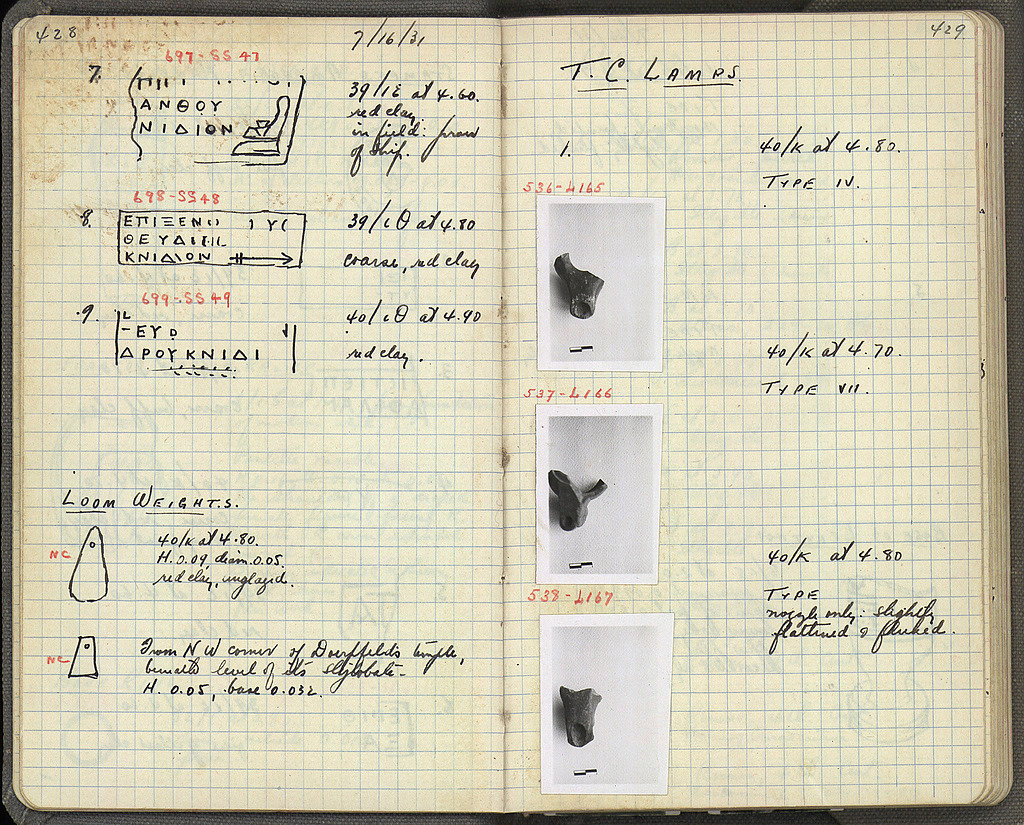 428
7/16/31
697-SS 47
7.
ΑΝΘΟΥ
ΝΙΔΙΟΝ
39/ΙΕ at 4.60.
red clay.
in field: prow
of ship.
698-SS48
8.
ΕΠΙΞΕΝΟ
ΘΕΥΔ
ΚΝΙΔΙΟΝ
39/ιΘ at 4.80
coarse, red clay
699-SS49
9.
ΕΥ
ΔΡΟΥΚΝΙΔΙ
40/ιΘ at 4.90
red clay.
LOOM WEIGHTS.
NC
40/K at 4.80.
H. 0.09, diam. 0.05.
red clay, unglazed.
NC
From NW corner of Doerpfeld's temple,
beneath level of its stylobate-
H. 0.05, base 0.032.
429
T.C. LAMPS.
1.
40/K at 4.80.
TYPE IV.
536-L165
40/K at 4.70.
TYPE VII.
537-L166
40/K at 4.80
TYPE
nozzle only: slightly
flattened & fluked.
538-L167